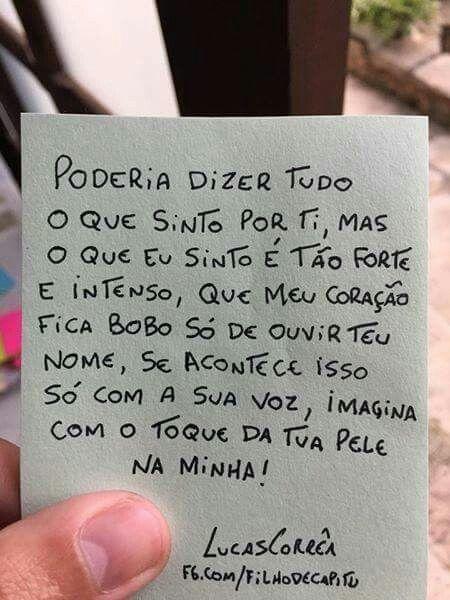 PODERIA DIZER TUDO
O QUE SINTO POR TI, MAS
O QUE EU SINTO É TÃO FORTE
E INTENSO, QUE MEU CORAÇÃO
FICA BOBO SÓ DE OUVIR TEU
NOME, SE ACONTECE ISSO
SÓ COM A SUA VOZ, IMAGINA
COM O TOQUE DA TUA PELE
NA MINHA!
LUCAS CORRÊA
FB.COM/FILHODECAPITU